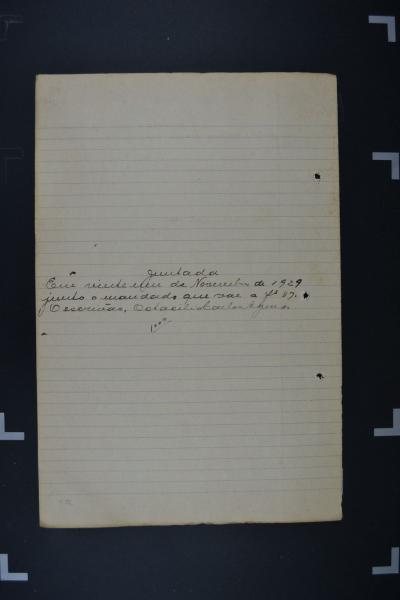 Juntada
Em vinte e um de Novembro de 1929
junto o mandado que vae a fs 17.
O escrivão,